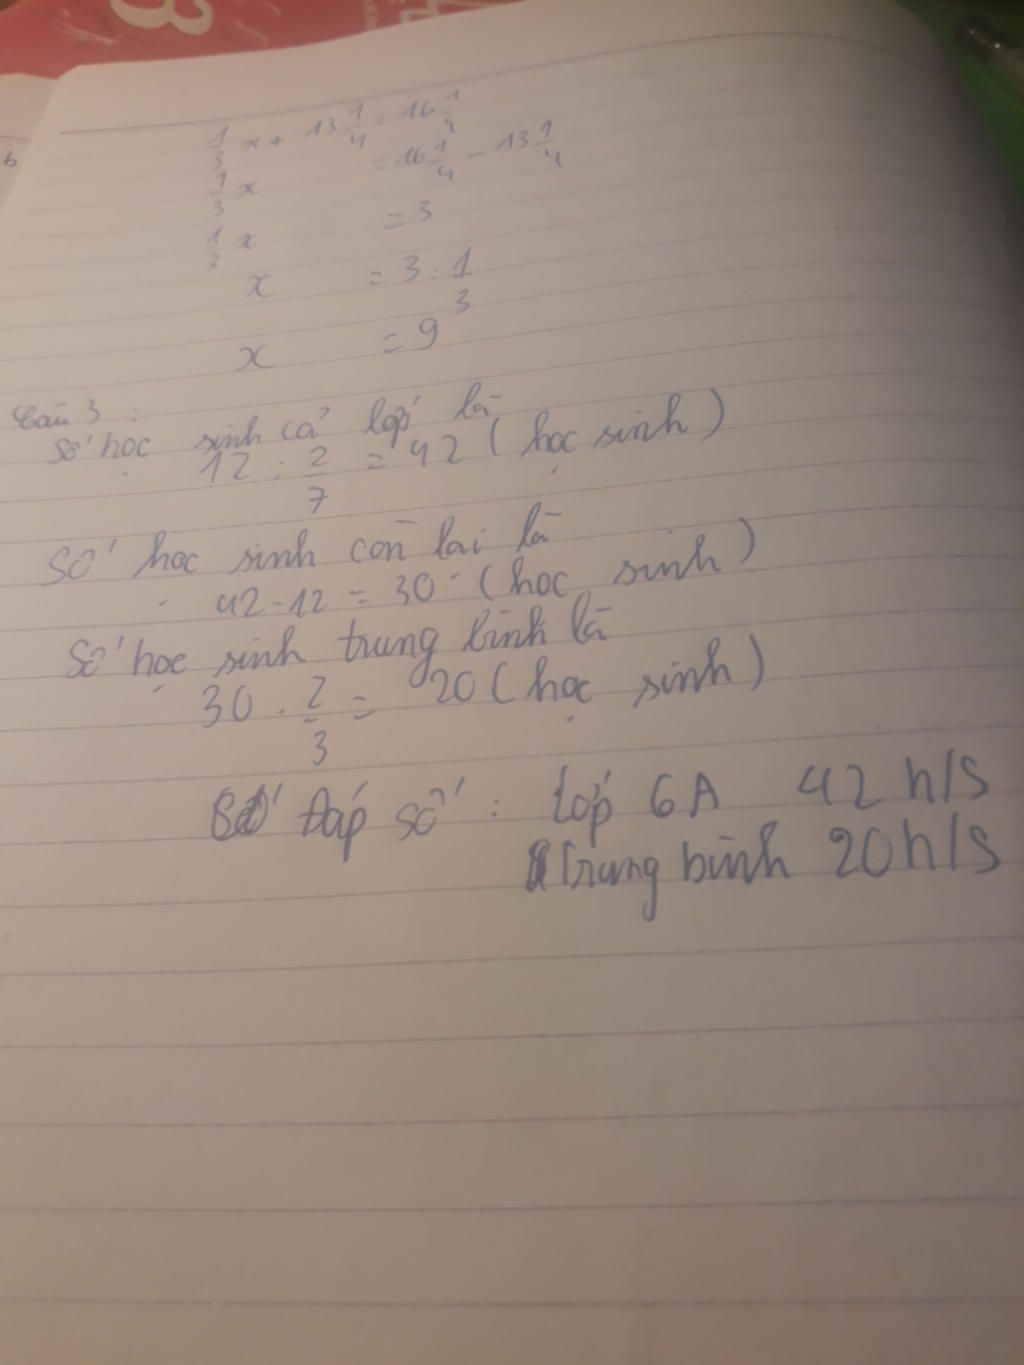 3
6
1/3 x + 13 1/4 = 16 1/4
1/3 x = 16 1/4 - 13 1/4
1/3 x = 3
x = 3 : 1/3
x = 9
Câu 3 :
Số học sinh cả lớp là
12 : 2/7 = 42 ( học sinh )
Số học sinh còn lại là
42 - 12 = 30 ( học sinh )
Số học sinh trung bình là
30 . 2/3 = 20 ( học sinh )
Đáp số : lớp 6A 42 h/s
Trung bình 20 h/s